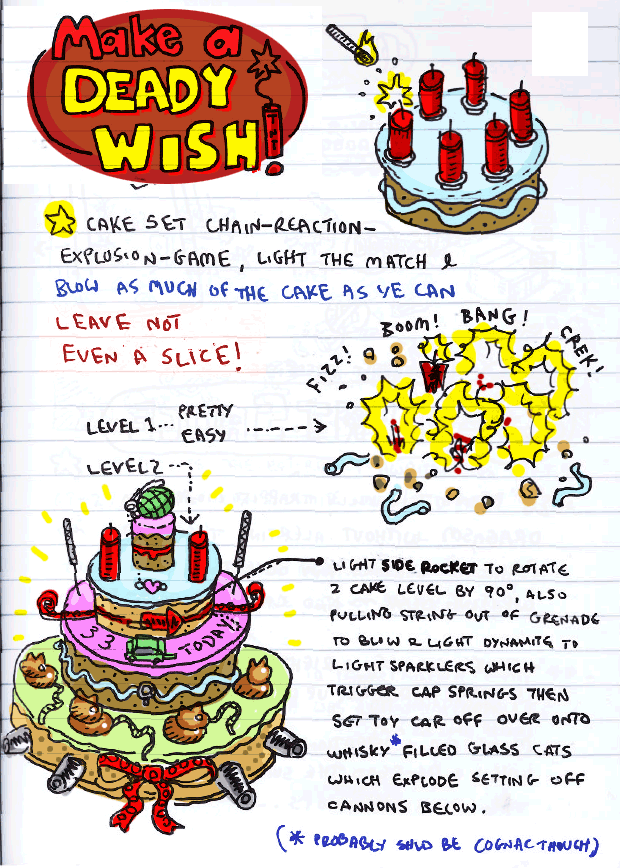 Make a
DEADY
WISH!
TNT
CAKE SET CHAIN-REACTION-
EXPLOSION-GAME, LIGHT THE MATCH &
BLOW AS MUCH OF THE CAKE AS YE CAN
LEAVE NOT
EVEN A SLICE!
FIZZ! BOOM! BANG! CREK!
LEVEL 1... PRETTY
EASY
LEVEL 2
33 TODAY!
LIGHT SIDE ROCKET TO ROTATE
2 CAKE LEVEL BY 90°, ALSO
PULLING STRING OUT OF GRENADE
TO BLOW & LIGHT DYNAMITE TO
LIGHT SPARKLERS WHICH
TRIGGER CAP SPRINGS THEN
SET TOY CAR OFF OVER ONTO
WHISKY* FILLED GLASS CATS
WHICH EXPLODE SETTING OFF
CANNONS BELOW.
(* PROBABLY SHUD BE COGNAC THOUGH)